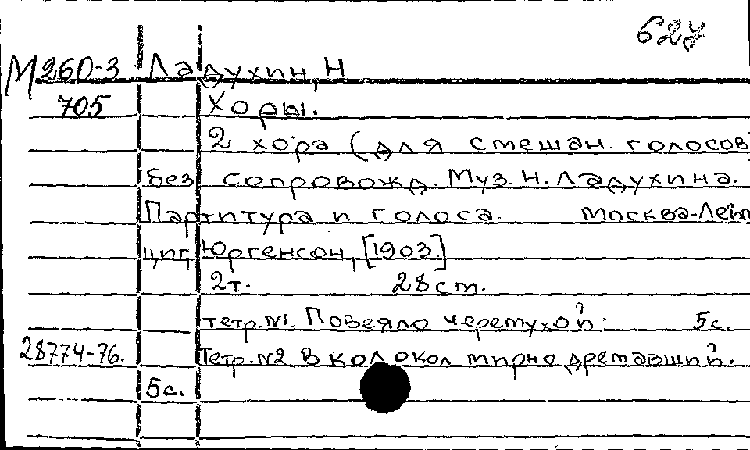 627
М260-3 Ладухин, Н
705 Хоры.
2 хора (для смешан. голосов
без сопровожд. Муз. Н. Ладухина.
Партитура и голоса. Москва-Лейп
циг, Юргенсон, [1903.]
2т. 28 ст.
тетр. №1. Повеяло черемухой: 5с.
28774-76. Тетр. №2 В колокол мирно дремавший.
5с.